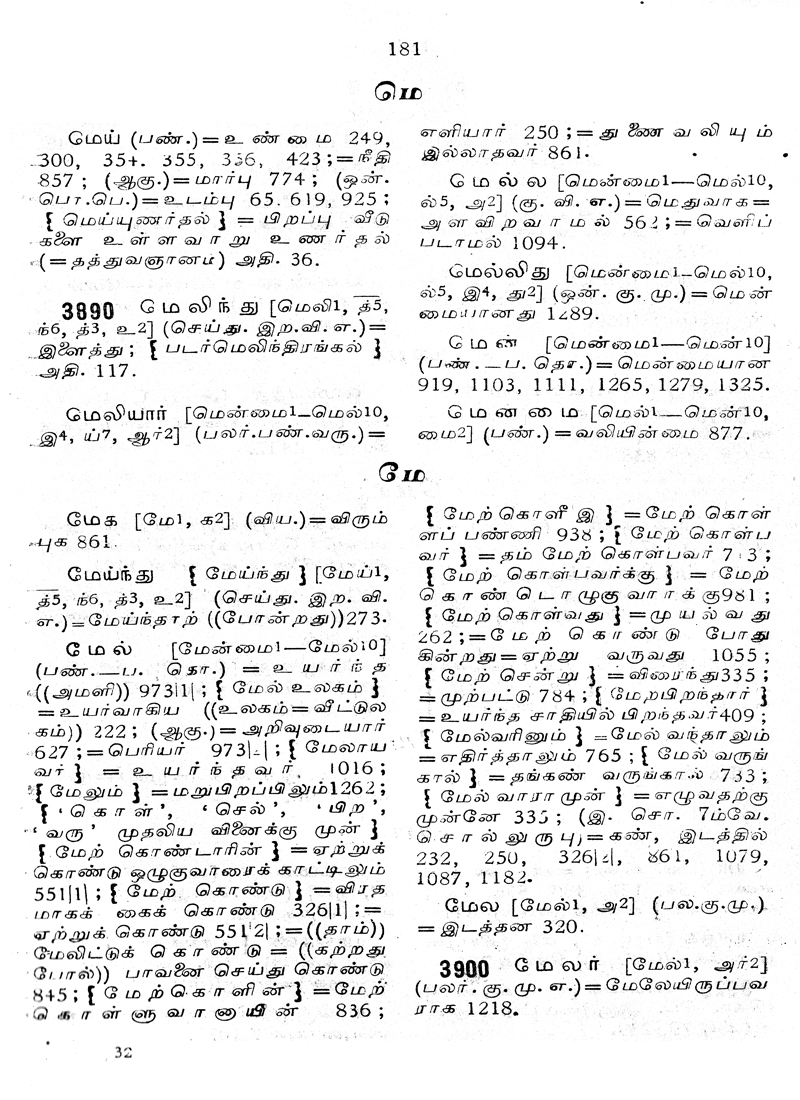 181
மெ
மெய் (பண்.)=உண்மை 249,
300, 35+. 355, 356, 423;=நீதி
857; (ஆகு.)=மார்பு 774; (ஒன்.
பொ.பெ.)=உடம்பு 65. 619, 925;
{மெய்யுணர்தல்} = பிறப்பு வீடு
களை உள்ளவாறு உணர்தல்
(=தத்துவஞானம்) அதி. 36.
3890 மெலிந்து [மெலி1, த்5,
ந்6, த்3, உ2] (செய்து. இற.வி.எ.)=
இளைத்து; {படர்மெலிந்திரங்கல்}
அதி. 117.
மெலியார் [மென்மை1—மெல்10,
இ4, ய்7, ஆர்2] (பலர்.பண்.வரு.)=
எளியார் 250;=துணைவலியும்
இல்லாதவர் 861.
மெல்ல [மென்மை1—மெல்10,
ல்5, அ2] (கு. வி. எ.)=மெதுவாக=
அளவிறவாமல் 562;=வெளிப்
படாமல் 1094.
மெல்லிது [மென்மை1—மெல்10,
ல்5, இ4, து2] (ஒன். கு. மு.)=மென்
மையானது 1289.
மென் [மென்மை1—மென்10]
(பண்.—ப. தொ.)=மென்மையான
919, 1103, 1111, 1265, 1279, 1325.
மென்மை [மெல்1—மென்10,
மை2] (பண்.)=வலியின்மை 877.
மே
மேக [மே1, க2] (விய.)=விரும்
புக 861.
மேய்ந்து {மேய்ந்து} [மேய்1,
த்5, ந்6, த்3, உ2] (செய்து. இற. வி.
எ.)=மேய்ந்தாற் ((போன்றது))273.
மேல் [மேன்மை1—மேல்10]
(பண்.—ப. தொ.) = உயர்ந்த
((அமளி)) 973|1|; {மேல் உலகம்}
=உயர்வாகிய ((உலகம்=வீட்டுல
கம்)) 222; (ஆகு.)=அறிவுடையார்
627;=பெரியர் 973|2|; {மேலாய
வர்} = உயர்ந்தவர் 1016;
{மேலும்} =மறுபிறப்பிலும்1262;
{‘கொள்’, ‘செல்’, ‘பிற’,
‘வரு’ முதலிய வினைக்கு முன்}
{மேற் கொண்டாரின்} =ஏற்றுக்
கொண்டு ஒழுகுவாரைக் காட்டிலும்
551|1|; {மேற் கொண்டு} =விரத
மாகக் கைக் கொண்டு 326|1|;=
ஏற்றுக் கொண்டு 551|2|;=((தாம்))
மேலிட்டுக் கொண்டு = ((கற்றது
போல்)) பாவனை செய்து கொண்டு
845; {மேற்கொளின்} =மேற்
கொள்ளுவானாயின் 836;
{மேற்கொளீஇ} =மேற் கொள்
ளப் பண்ணி 938; {மேற் கொள்ப
வர்} =தம் மேற் கொள்பவர்
{மேற் கொள்பவர்க்கு} = மேற்
கொண்டொழுகுவார்க்கு981;
{மேற் கொள்வது} =முயல்வது
262;=மேற் கொண்டு போது
கின்றது=ஏற்று வருவது 1055;
{மேற் சென்று} =விரைந்து335;
=முற்பட்டு 784; {மேற்பிறந்தார்}
=உயர்ந்த சாதியில் பிறந்தவர்409;
{மேல்வரினும்} =மேல் வந்தாலும்
=எதிர்த்தாலும் 765; {மேல் வருங்
கால்} =தங்கண் வருங்கால் 733;
{மேல் வாராமுன்} =எழுவதற்கு
முன்னே 335; (இ. சொ. 7ம்வே.
சொல்லுருபு)=கண், இடத்தில்
232, 250, 326|2|, 861, 1079,
1087, 1182.
மேல [மேல்1, அ2] (பல.கு.மு.)
=இடத்தன 320.
3900 மேலர் [மேல்1, அர்2]
(பலர். கு. மு. எ.)=மேலேயிருப்பவ
ராக 1218.
32